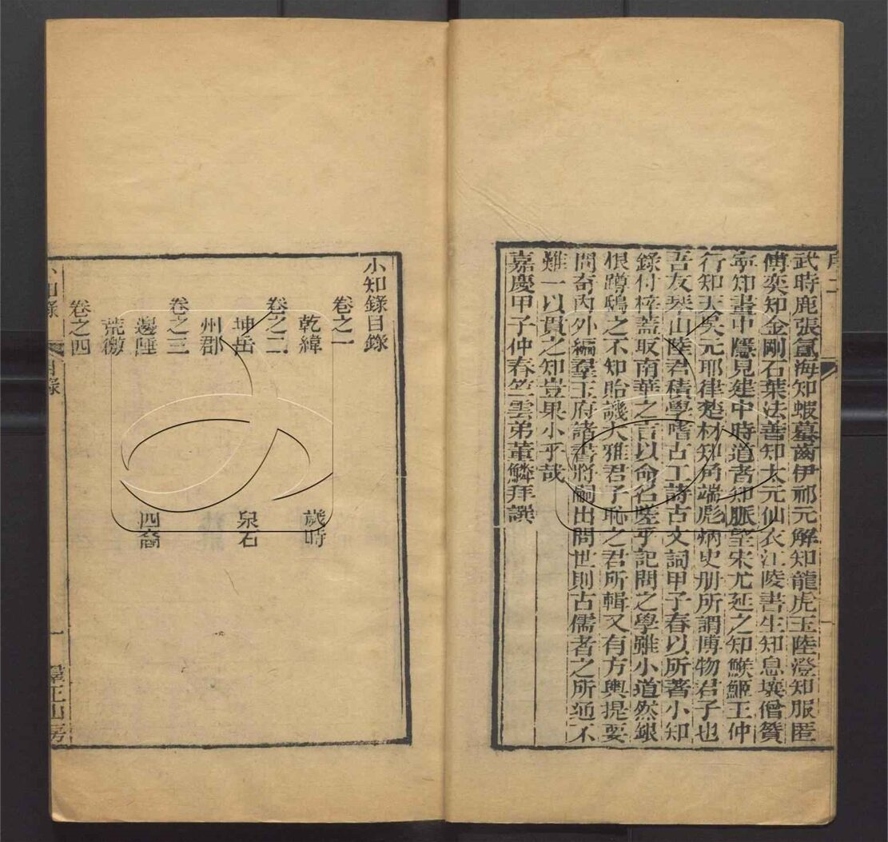 序二
武時鹿張氳海知蝦蟇菌伊祁元解知龍虎玉陸澄知服匿
傅奕知金剛石葉法善知太元仙衣江陵書生知息壤僧贊
寧知畫中隱見建中時道者知脈望宋尤延之知鯸䱌王仲
行知天吳元耶律楚材知角端彪炳史册所謂博物君子也
吾友琴山陸君積學嗜古工詩古文詞甲子春以所著小知
錄付梓蓋取南華之言以命名陸乎記問之學雖小道然銀
根蹲鴟之不知貽譏大雅君子恥之君所輯又有方輿提要
問奇內外編羣玉府諸書將嗣出問世則古儒者之所通不
難一以貫之知豈果小乎哉
嘉慶甲子仲春竺雲弟董鱗拜譔
小知錄目錄
卷之一
乾緯 歲時
卷之二
坤岳 泉石
州郡
卷之三
邊陲 四裔
荒徼
卷之四
小知錄 目錄 一